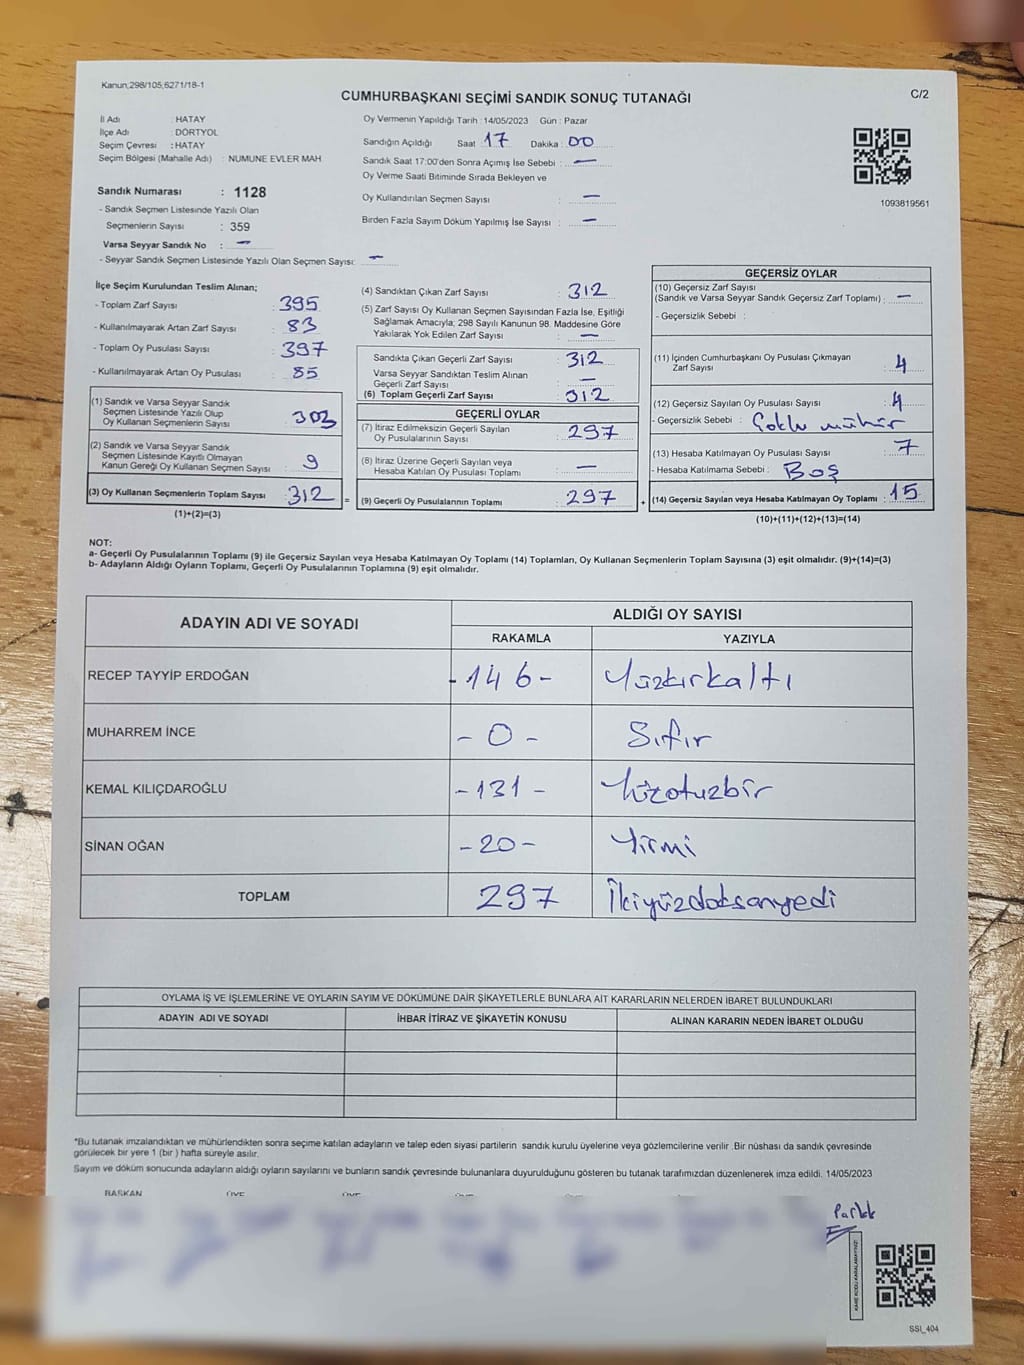 Kanun;298/105;6271/18-1
CUMHURBAŞKANI SEÇİMİ SANDIK SONUÇ TUTANAĞI
C/2
İl Adı : HATAY
İlçe Adı : DÖRTYOL
Seçim Çevresi : HATAY
Seçim Bölgesi (Mahalle Adı) : NUMUNE EVLER MAH
Oy Vermenin Yapıldığı Tarih : 14/05/2023 Gün : Pazar
Sandığın Açıldığı Saat : 17 Dakika : 00
Sandık Saat 17:00'den Sonra Açımış İse Sebebi : —
Oy Verme Saati Bitiminde Sırada Bekleyen ve
Oy Kullandırılan Seçmen Sayısı : —
Birden Fazla Sayım Döküm Yapılmış İse Sayısı : —
1093819561
Sandık Numarası : 1128
- Sandık Seçmen Listesinde Yazılı Olan
Seçmenlerin Sayısı : 359
Varsa Seyyar Sandık No : —
- Seyyar Sandık Seçmen Listesinde Yazılı Olan Seçmen Sayısı: —
İlçe Seçim Kurulundan Teslim Alınan;
- Toplam Zarf Sayısı : 395
- Kullanılmayarak Artan Zarf Sayısı : 83
- Toplam Oy Pusulası Sayısı : 397
- Kullanılmayarak Artan Oy Pusulası : 85
(1) Sandık ve Varsa Seyyar Sandık
Seçmen Listesinde Yazılı Olup
Oy Kullanan Seçmenlerin Sayısı : 303
(2) Sandık ve Varsa Seyyar Sandık
Seçmen Listesinde Kayıtlı Olmayan
Kanun Gereği Oy Kullanan Seçmen Sayısı : 9
(3) Oy Kullanan Seçmenlerin Toplam Sayısı : 312 =
(1)+(2)=(3)
(4) Sandıktan Çıkan Zarf Sayısı : 312
(5) Zarf Sayısı Oy Kullanan Seçmen Sayısından Fazla İse, Eşitliği
Sağlamak Amacıyla; 298 Sayılı Kanunun 98. Maddesine Göre
Yakılarak Yok Edilen Zarf Sayısı : —
Sandıkta Çıkan Geçerli Zarf Sayısı : 312
Varsa Seyyar Sandıktan Teslim Alınan
Geçerli Zarf Sayısı : —
(6) Toplam Geçerli Zarf Sayısı : 312
GEÇERLİ OYLAR
(7) İtiraz Edilmeksizin Geçerli Sayılan
Oy Pusulalarının Sayısı : 297
(8) İtiraz Üzerine Geçerli Sayılan veya
Hesaba Katılan Oy Pusulası Toplamı : —
(9) Geçerli Oy Pusulalarının Toplamı : 297 +
GEÇERSİZ OYLAR
(10) Geçersiz Zarf Sayısı
(Sandık ve Varsa Seyyar Sandık Geçersiz Zarf Toplamı) : —
- Geçersizlik Sebebi :
(11) İçinden Cumhurbaşkanı Oy Pusulası Çıkmayan
Zarf Sayısı : 4
(12) Geçersiz Sayılan Oy Pusulası Sayısı : 4
- Geçersizlik Sebebi : Çoklu mühür
(13) Hesaba Katılmayan Oy Pusulası Sayısı : 7
- Hesaba Katılmama Sebebi : Boş
(14) Geçersiz Sayılan veya Hesaba Katılmayan Oy Toplamı : 15
(10)+(11)+(12)+(13)=(14)
NOT:
a- Geçerli Oy Pusulalarının Toplamı (9) ile Geçersiz Sayılan veya Hesaba Katılmayan Oy Toplamı (14) Toplamları, Oy Kullanan Seçmenlerin Toplam Sayısına (3) eşit olmalıdır. (9)+(14)=(3)
b- Adayların Aldığı Oyların Toplamı, Geçerli Oy Pusulalarının Toplamına (9) eşit olmalıdır.
ADAYIN ADI VE SOYADI
ALDIĞI OY SAYISI
RAKAMLA YAZIYLA
RECEP TAYYİP ERDOĞAN -146- Yüzkırkaltı
MUHARREM İNCE -0- Sıfır
KEMAL KILIÇDAROĞLU -131- Yüzotuzbir
SİNAN OĞAN -20- Yirmi
TOPLAM 297 İkiyüzdoksanyedi
OYLAMA İŞ VE İŞLEMLERİNE VE OYLARIN SAYIM VE DÖKÜMÜNE DAİR ŞİKAYETLERLE BUNLARA AİT KARARLARIN NELERDEN İBARET BULUNDUKLARI
ADAYIN ADI VE SOYADI İHBAR İTİRAZ VE ŞİKAYETİN KONUSU ALINAN KARARIN NEDEN İBARET OLDUĞU
*Bu tutanak imzalandıktan ve mühürlendikten sonra seçime katılan adayların ve talep eden siyasi partilerin sandık kurulu üyelerine veya gözlemcilerine verilir .Bir nüshası da sandık çevresinde
görülecek bir yere 1 (bir ) hafta süreyle asılır.
Sayım ve döküm sonucunda adayların aldığı oyların sayılarını ve bunların sandık çevresinde bulunanlara duyurulduğunu gösteren bu tutanak tarafımızdan düzenlenerek imza edildi. 14/05/2023
BAŞKAN ÜYE ÜYE ÜYE ÜYE
KARE KODU KARALAMAYINIZ!
SSI_404